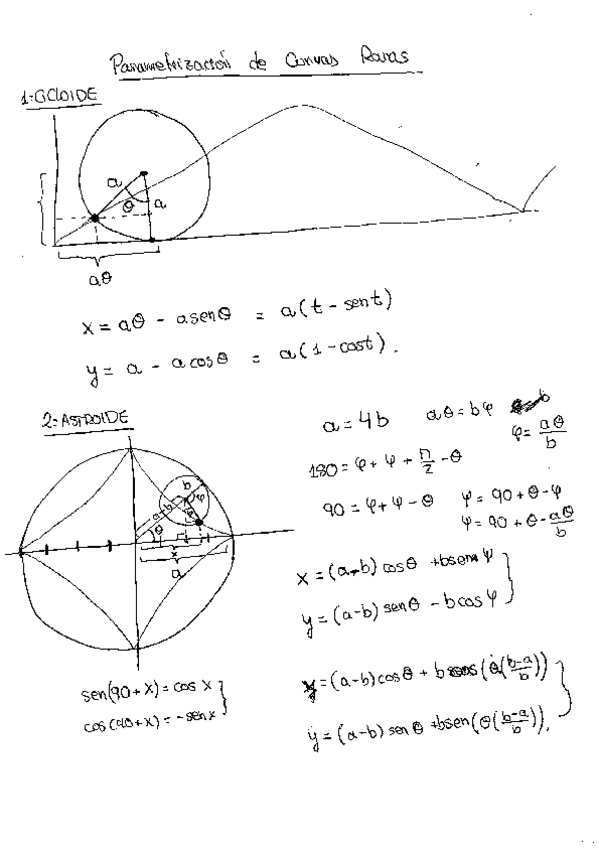 Parametrización de Curvas Raras
1=CICLOIDE
a
θ
a
aθ
x = aθ - a senθ = a(t - sent)
y = a - a cosθ = a(1 - cost).
2=ASTROIDE
a = 4b aθ = bφ
φ = aθ/b
180 = φ + ψ + π/2 - θ
90 = φ + ψ - θ ψ = 90 + θ - φ
ψ = 90 + θ - aθ/b
b
a-b
φ
θ
x
a
x = (a-b) cosθ + b sen ψ
y = (a-b) senθ - b cos ψ
sen(90 + x) = cos x
cos(90 + x) = -sen x
x = (a-b) cosθ + b cos(θ(b-a/b))
y = (a-b) sen θ + b sen(θ(b-a/b)).